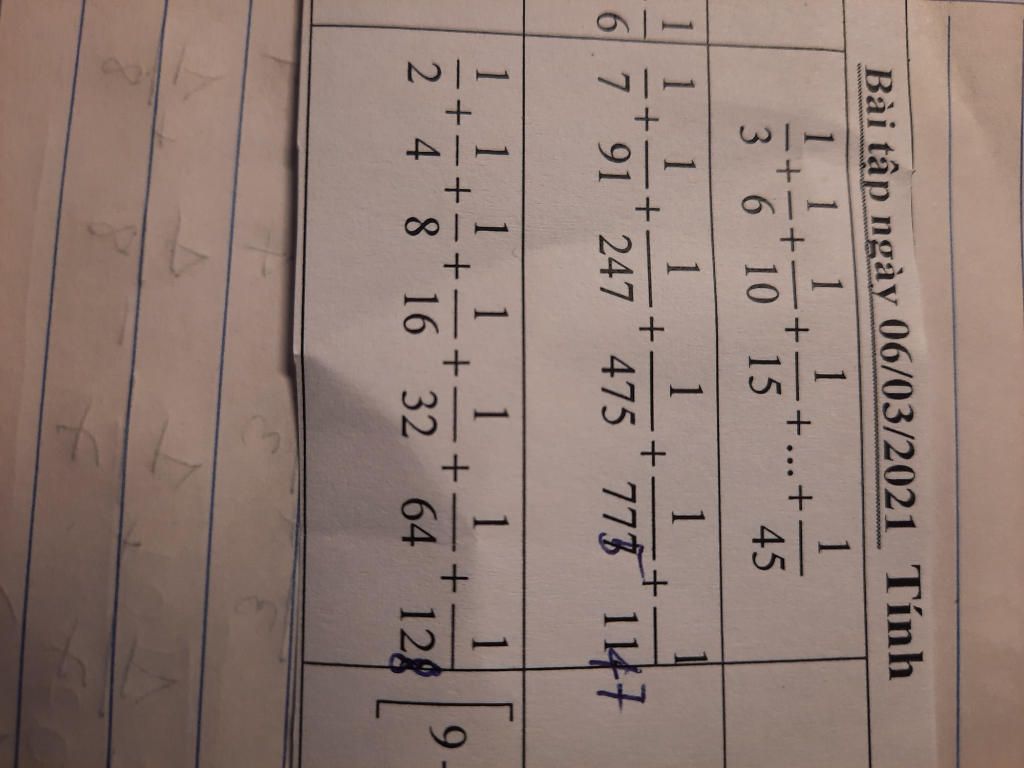 Bài tập ngày 06/03/2021 Tính
1/3 + 1/6 + 1/10 + 1/15 + ... + 1/45
1/6
1/7 + 1/91 + 1/247 + 1/475 + 1/775 + 1/1147
1/2 + 1/4 + 1/8 + 1/16 + 1/32 + 1/64 + 1/128
[ 9-